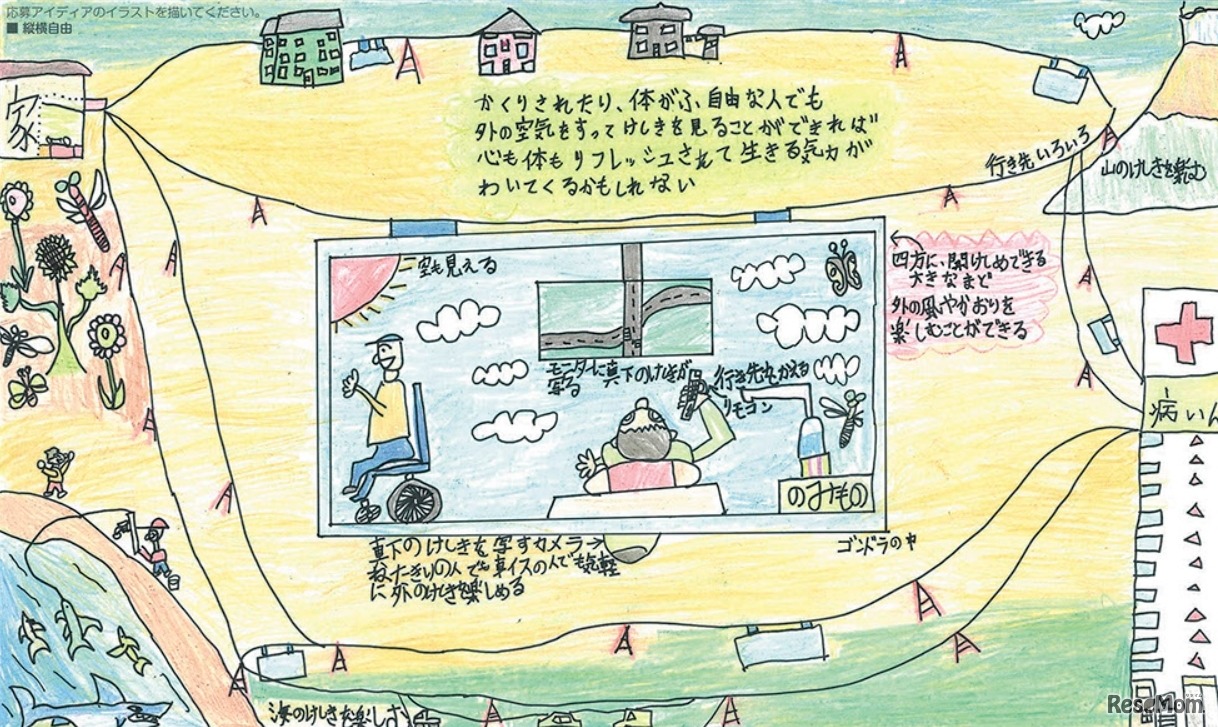 応募アイディアのイラストを描いてください。
■ 縦横自由
家
かくりされたり、体がふ自由な人でも
外の空気をすってけしきを見ることができれば
心も体もリフレッシュされて生きる気力が
わいてくるかもしれない
行き先いろいろ
山のけしきを楽しむ
空も見える
四方に、開けしめできる
大きなまど
外の風やかおりを
楽しむことができる
モニターに真下のけしきが
写る
行き先もかえる
リモコン
病いん
のみもの
真下のけしきを写すカメラ→
ねたきりの人でも車イスの人でも気軽
に外のけしきを楽しめる
ゴンドラの中
海のけしきを楽しむ
ReseMom